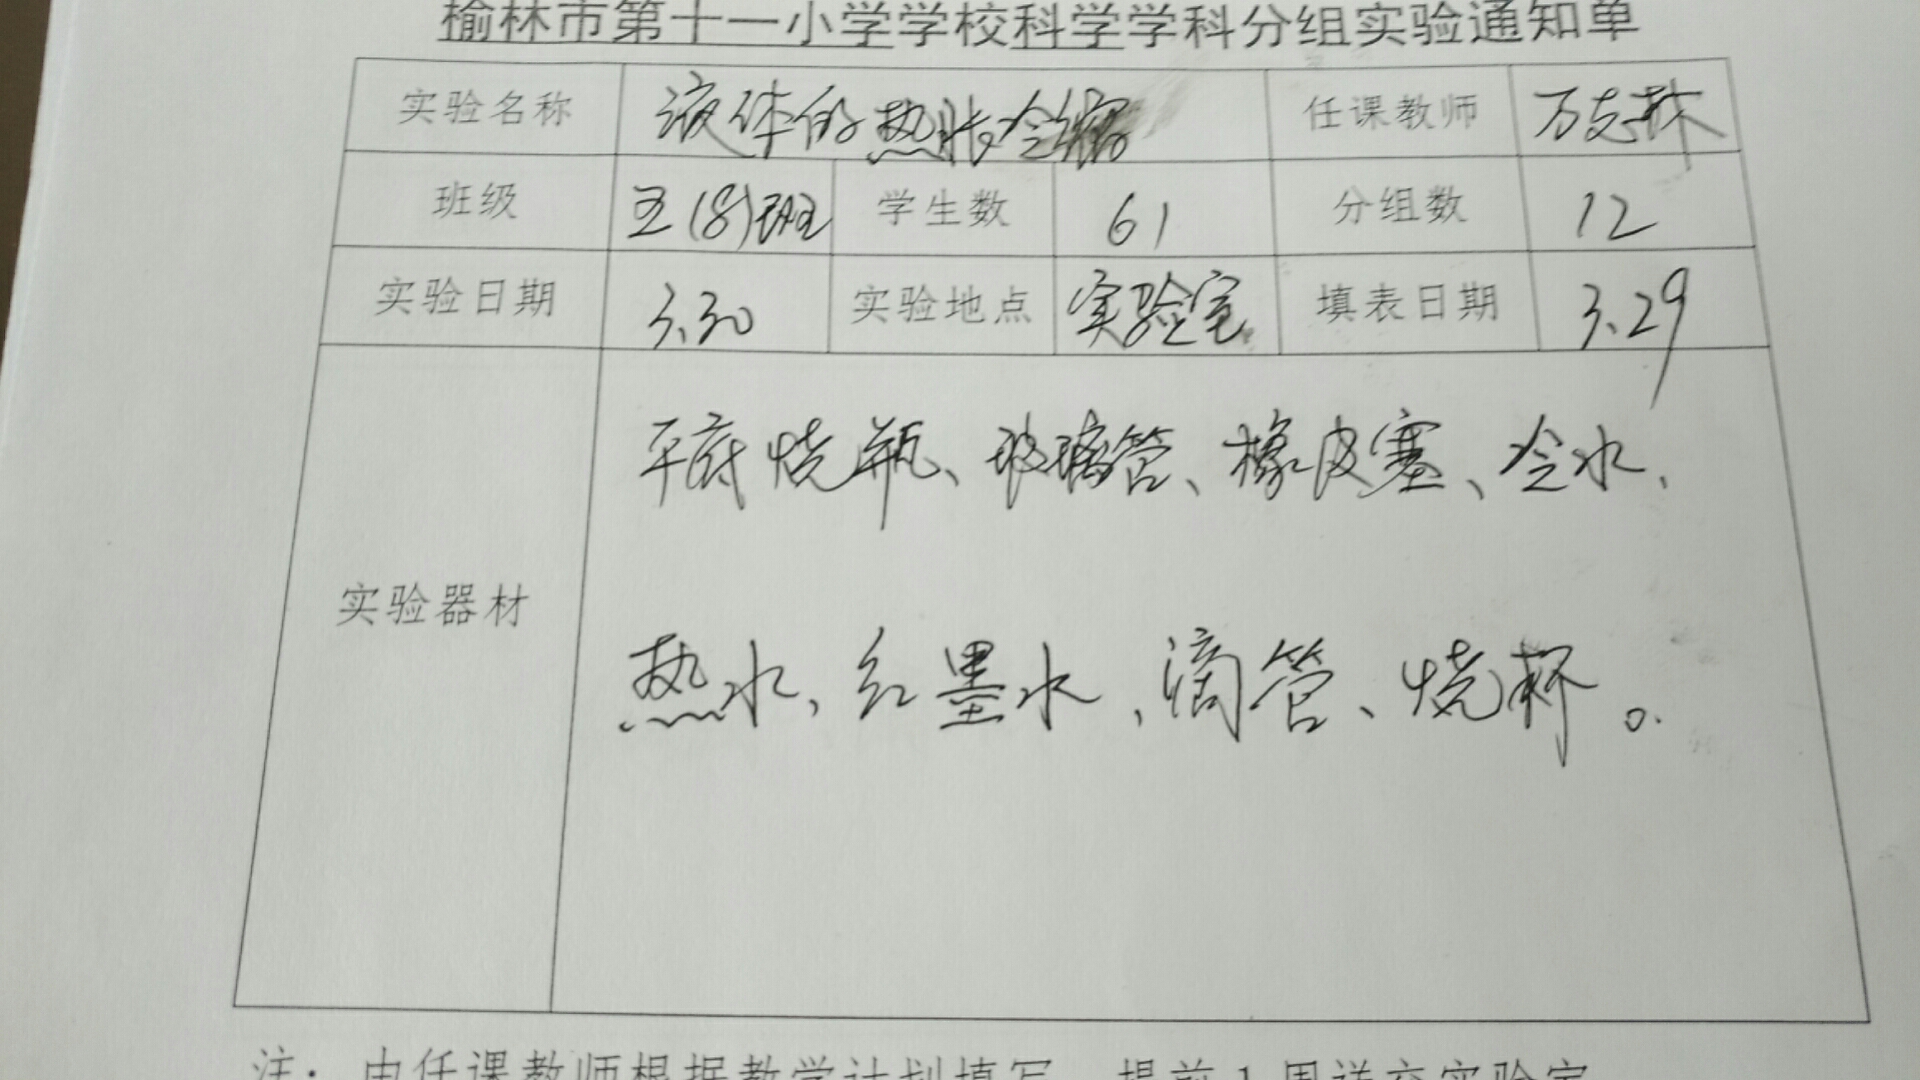 榆林市第十一小学学校科学学科分组实验通知单
实验名称 液体的热胀冷缩 任课教师 万志林
班级 五(8)班 学生数 61 分组数 12
实验日期 3.30 实验地点 实验室 填表日期 3.29
平底烧瓶、玻璃管、橡皮塞、冷水、
实验器材
热水、红墨水、滴管、烧杯。
注：由任课教师根据教学计划填写，提前1周送交实验室